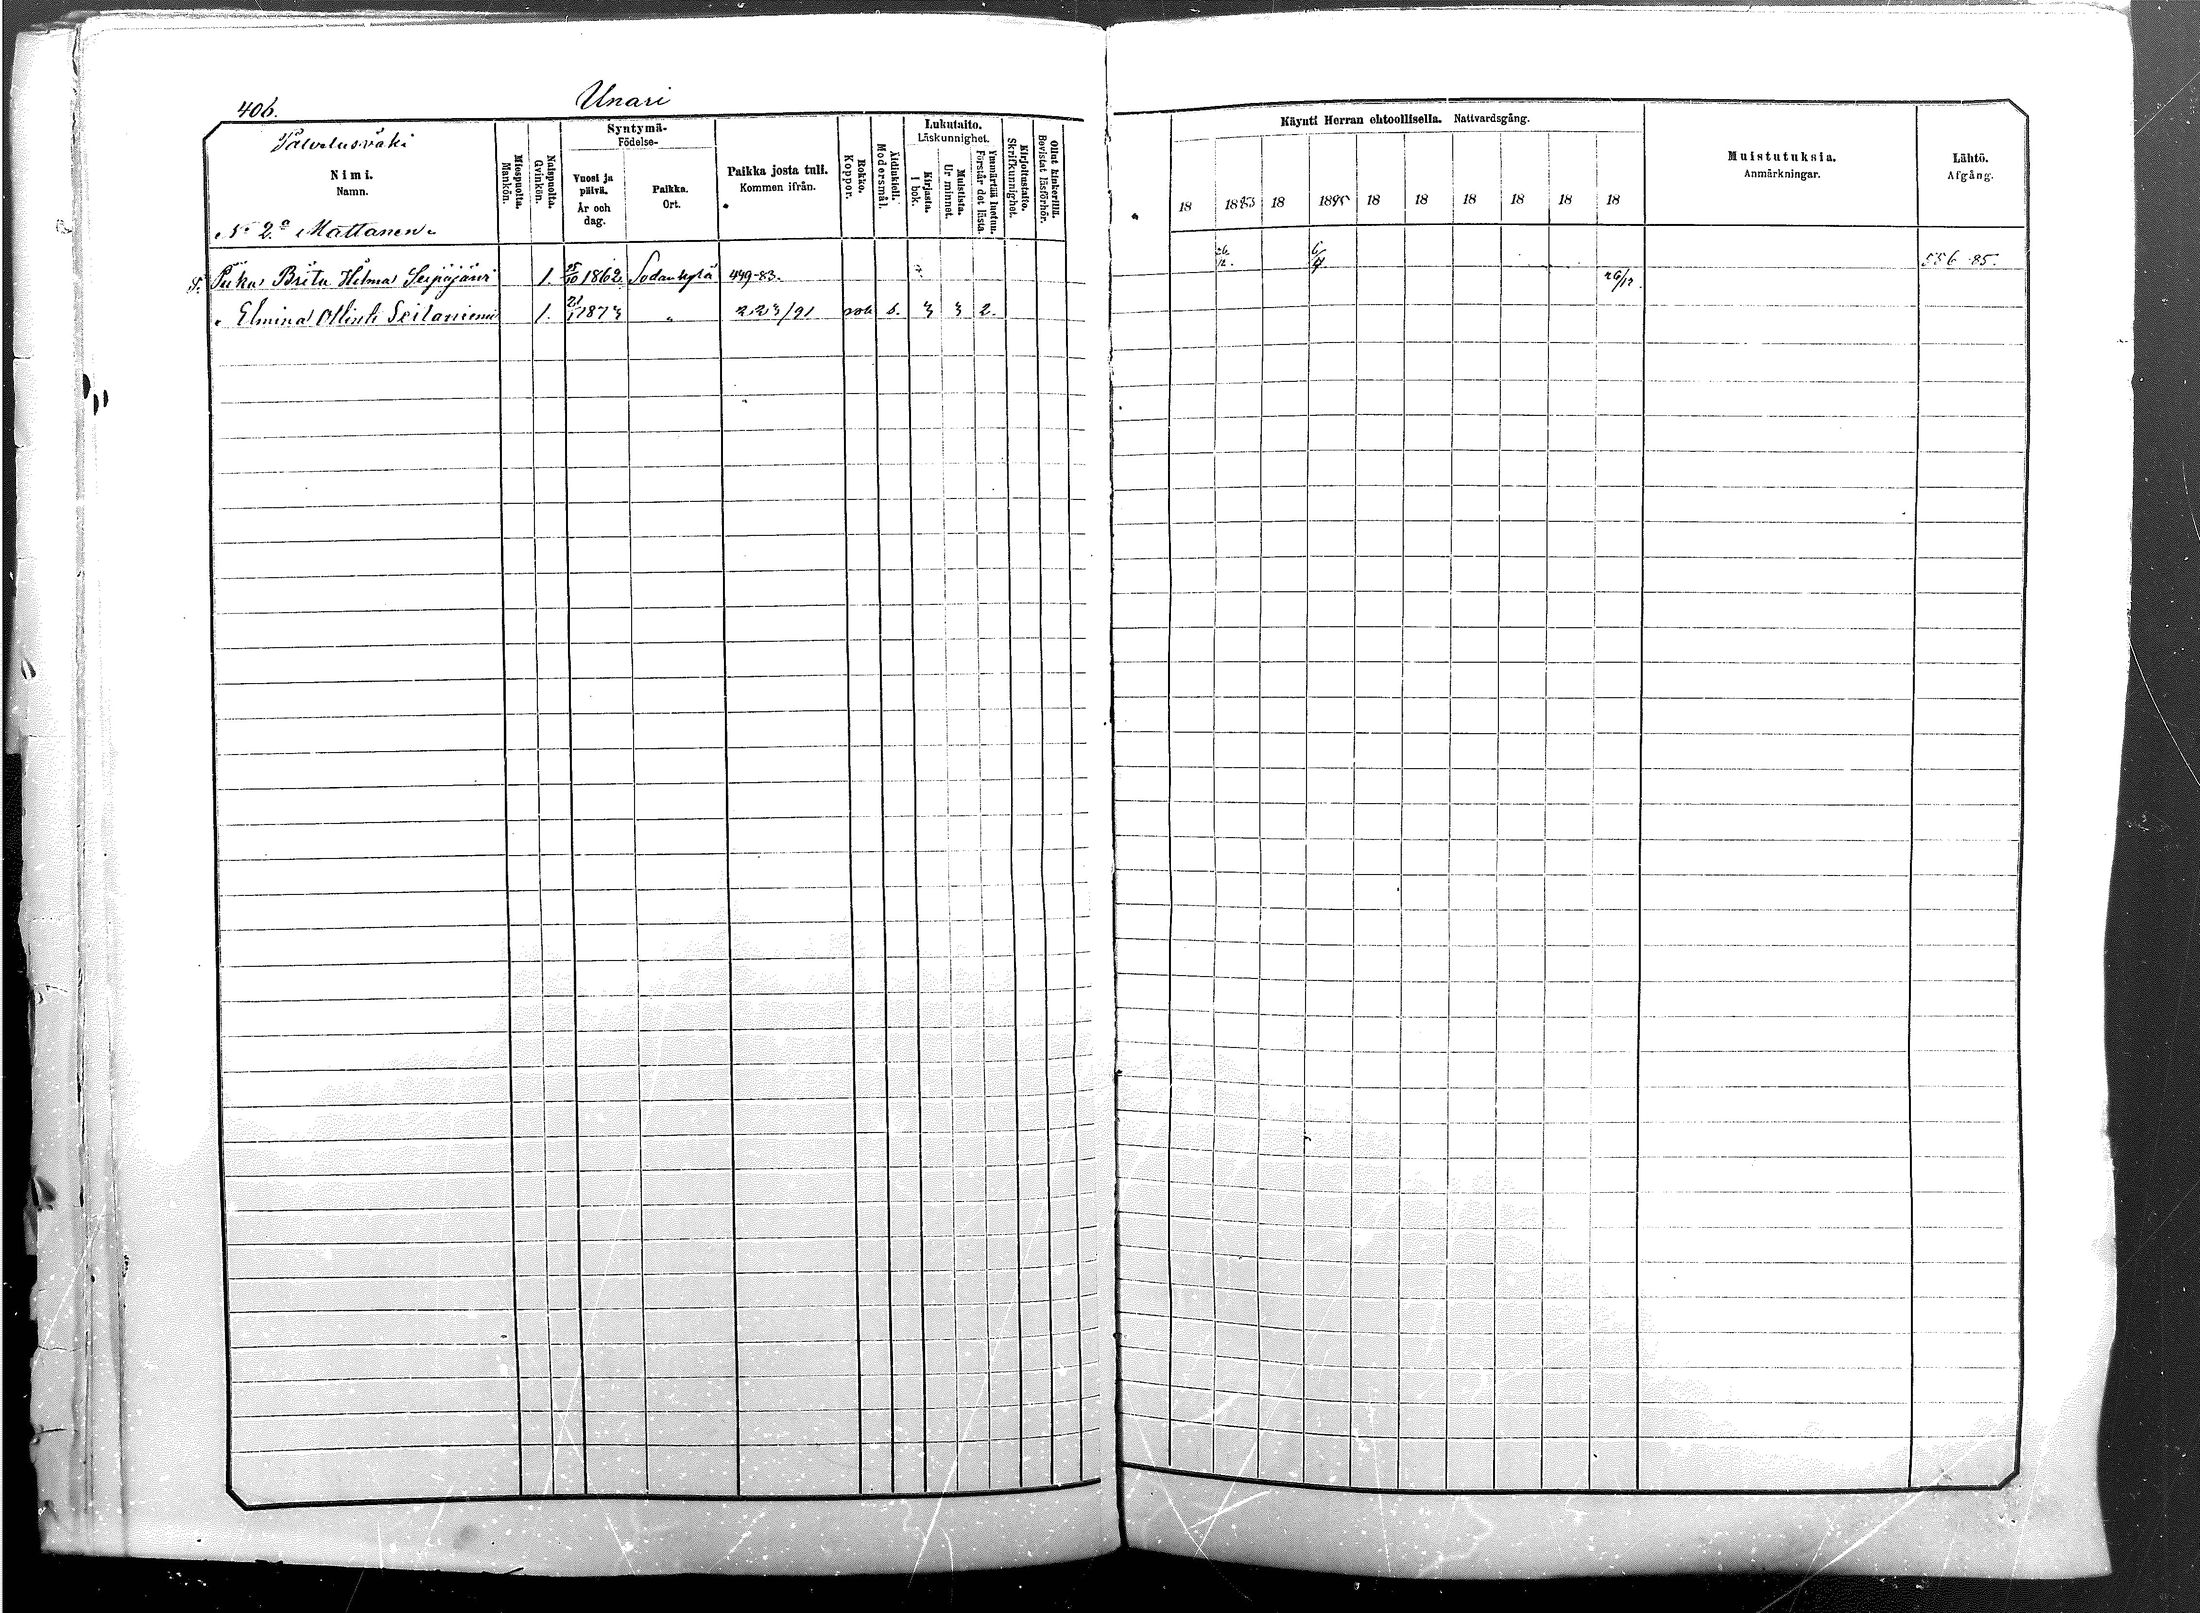 406.
Unari
Palvelusväki
Nimi.
Namn.
No 2. Mattanen
Miespuolta.
Mankön.
Naispuolta.
Qvinkön.
Syntymä-
Födelse-
Vuosi ja
päivä.
År och
dag.
Paikka.
Ort.
Paikka josta tuli.
Kommen ifrån.
Rokko.
Koppor.
Äidinkieli.
Modersmål.
Lukutaito.
Läskunnighet.
Kirjasta.
I bok.
Muistista.
Ur minnet.
Ymmärtää luetun.
Förstår det lästa.
Kirjoitustaito.
Skrifkunnighet.
Ollut kinkerillä.
Bevistat läsförhör.
Käynti Herran ehtoollisella. Nattvardsgång.
18 1883 18 1895 18 18 18 18 18 18
Muistutuksia.
Anmärkningar.
Lähtö.
Afgång.
Piika Brita Hilma Seipäjärvi 1. 25/10 1862 Sodankylä 449-83. 26/12. 6/4 556-85.
" Elmina 1. 21/1 1873 " 223/91 rok s. 3 3 2. 26/12.